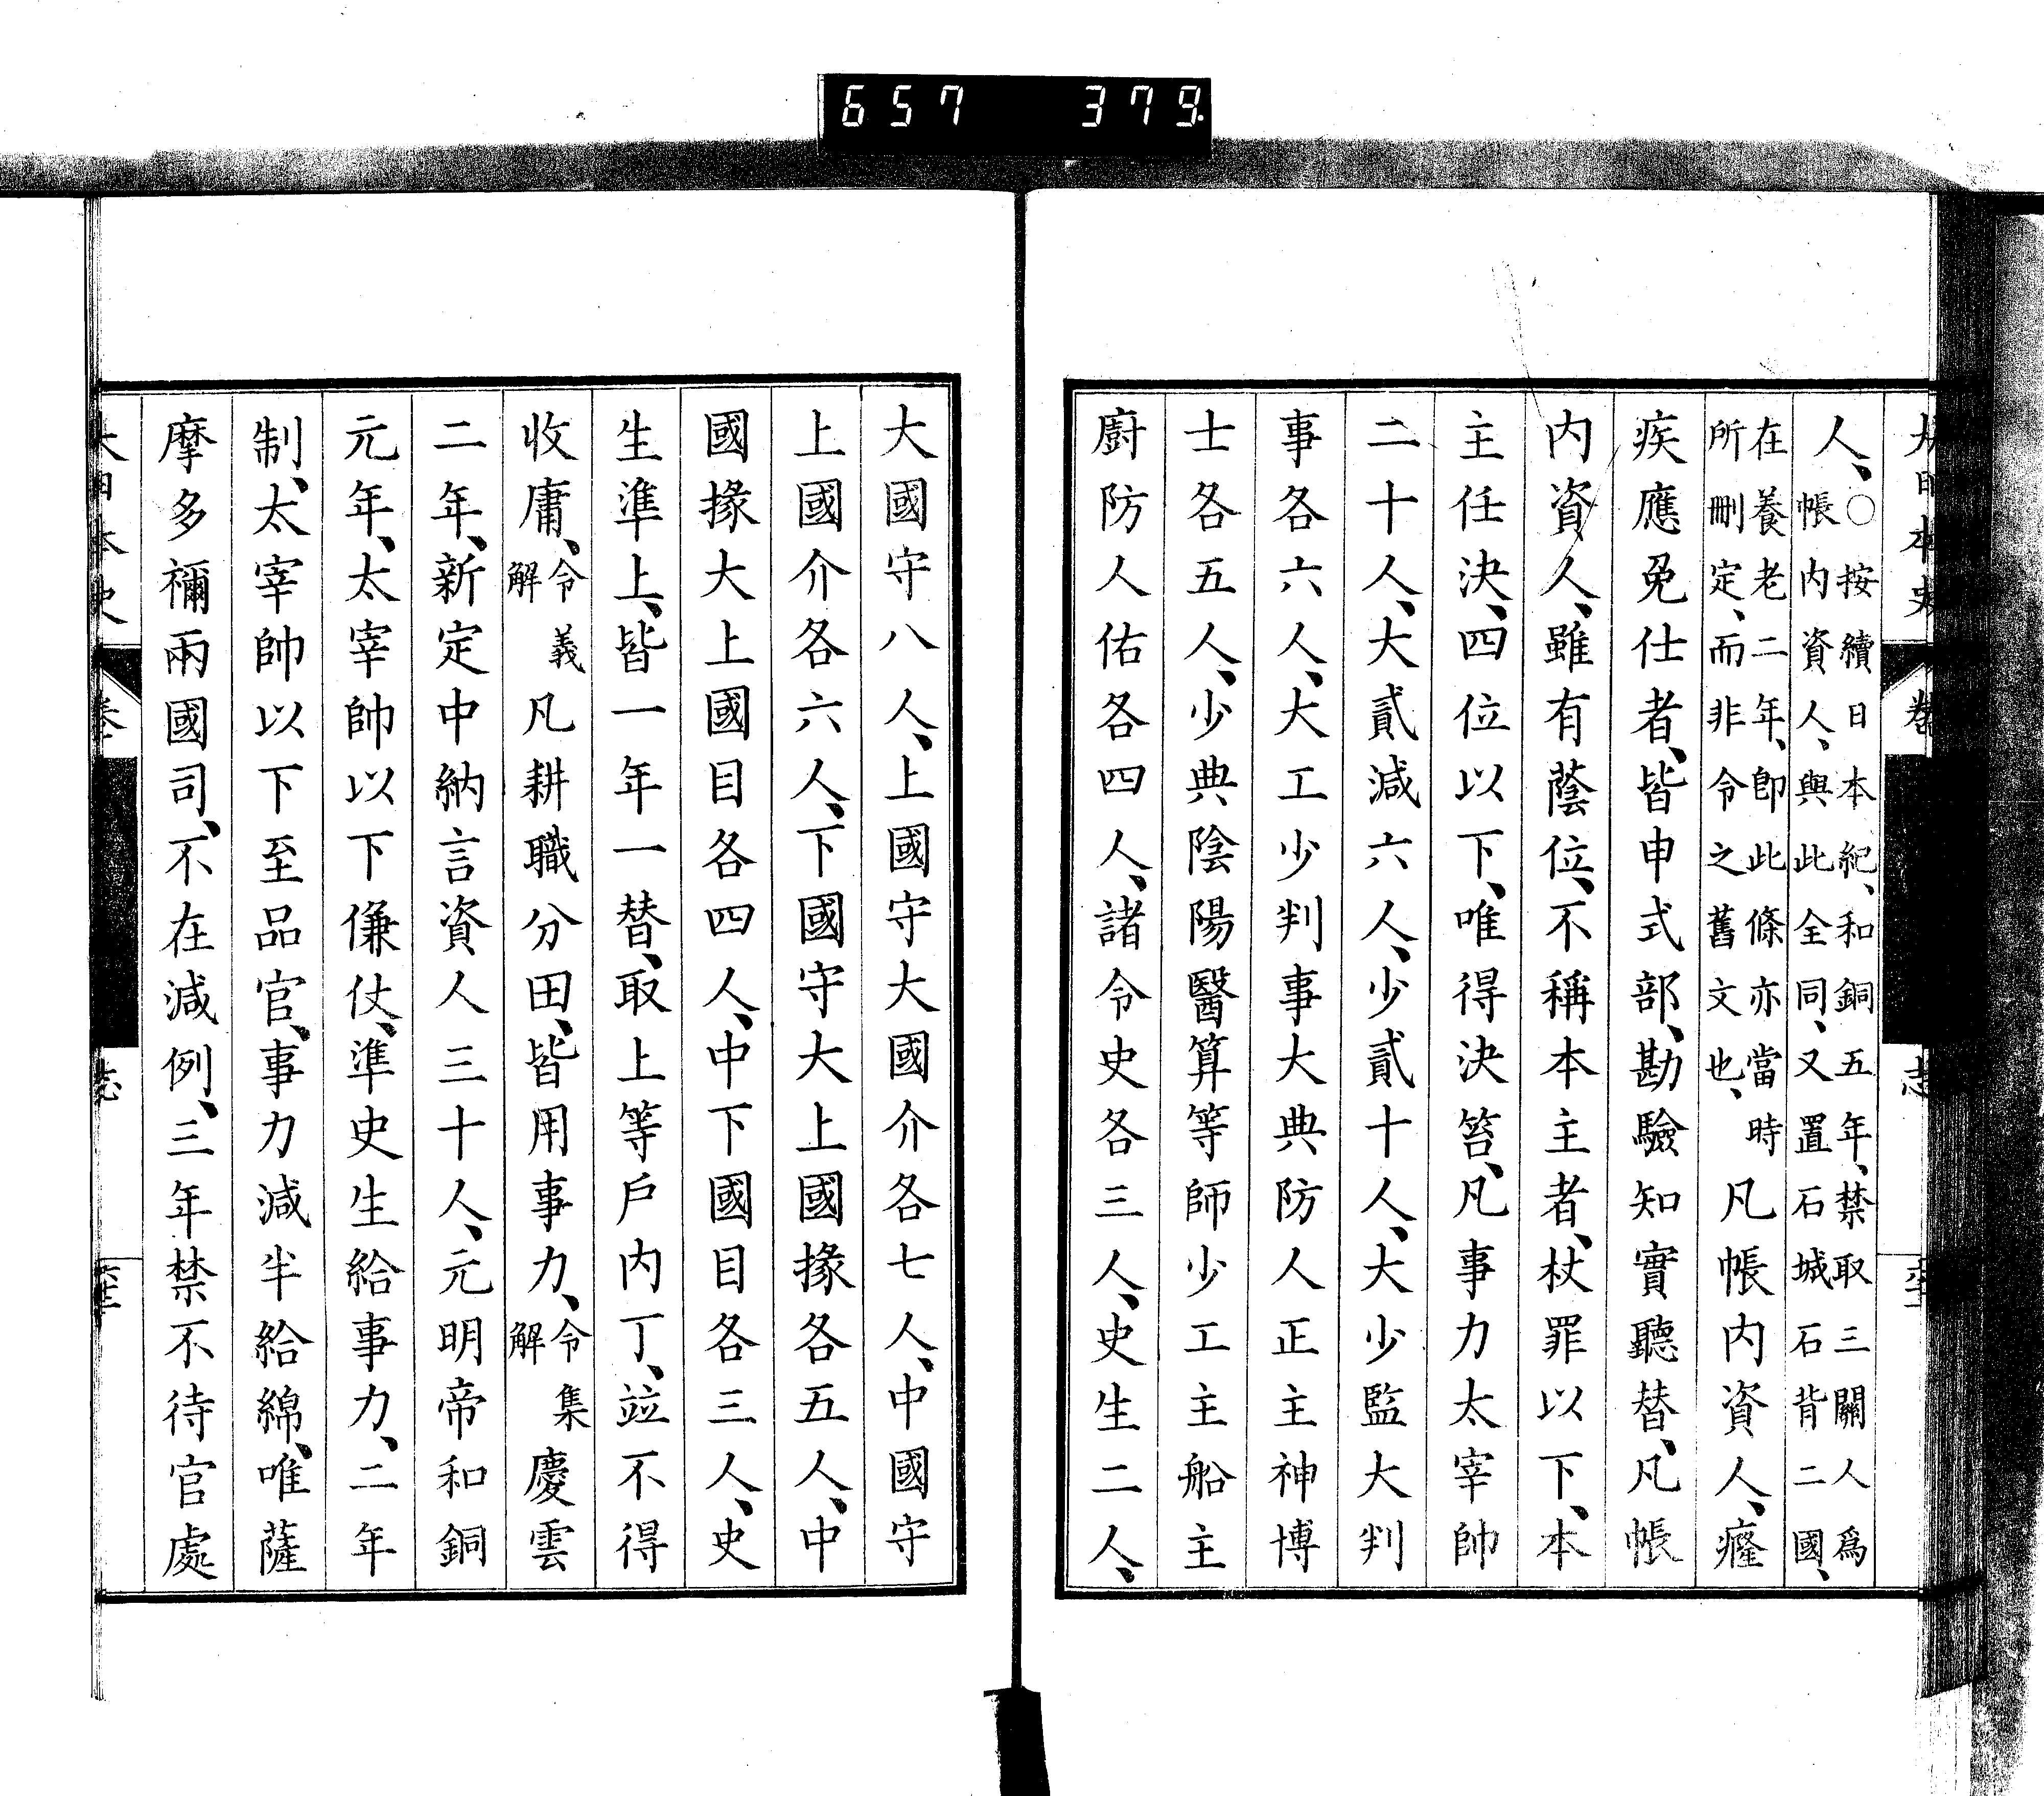 657 379
大日本史 卷 志
人、○按續日本紀、和銅五年、禁取三關人爲
帳內資人、與此全同、又置石城石背二國、
在養老二年、卽此條亦當時
所刪定、而非令之舊文也、凡帳內資人、癃
疾應免仕者、皆申式部、勘驗知實聽替、凡帳
內資人、雖有蔭位、不稱本主者、杖罪以下、本
主任決、四位以下、唯得決笞、凡事力太宰帥
二十人、大貳減六人、少貳十人、大少監大判
事各六人、大工少判事大典防人正主神博
士各五人、少典陰陽醫算等師少工主船主
廚防人佑各四人、諸令史各三人、史生二人、
大國守八人、上國守大國介各七人、中國守
上國介各六人、下國守大上國掾各五人、中
國掾大上國目各四人、中下國目各三人、史
生準上、皆一年一替、取上等戶內丁、竝不得
收庸、令義解凡耕職分田、皆用事力、令集解慶雲
二年、新定中納言資人三十人、元明帝和銅
元年、太宰帥以下傔仗、準史生給事力、二年
制、太宰帥以下至品官、事力減半給綿、唯薩
摩多禰兩國司、不在減例、三年禁不待官處
大日本史 卷 志